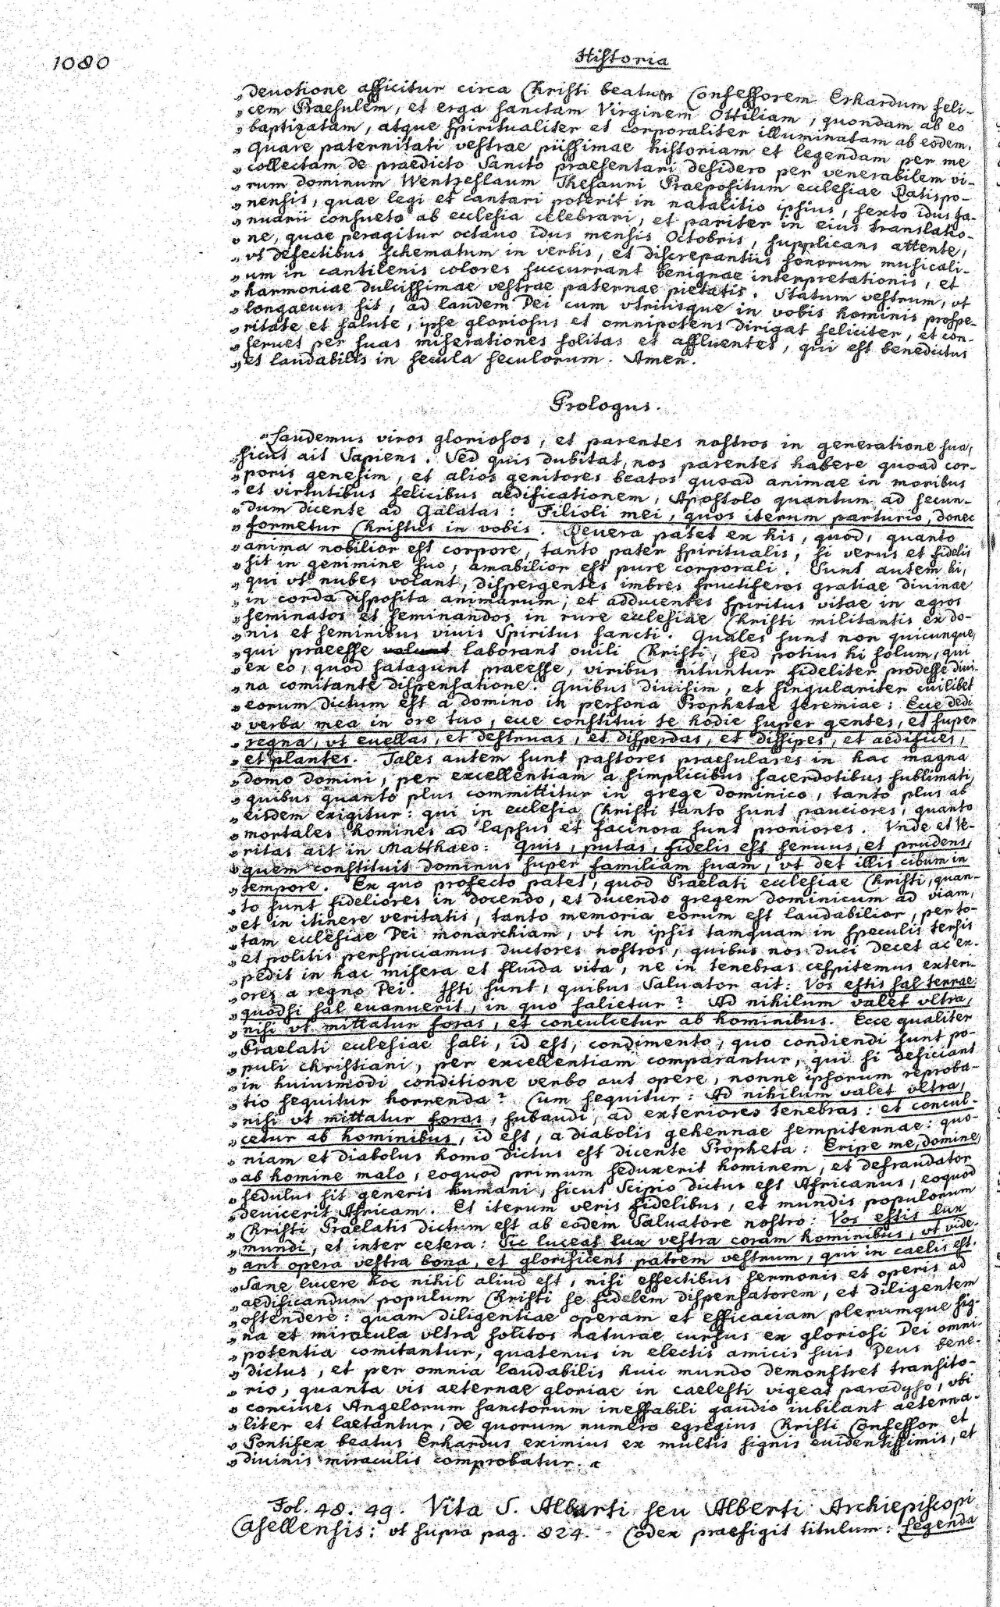 1080
Historia
„devotione afficitur circa Christi beatum Confessorem Erhardum feli-
„cem Praesulem, et erga sanctam Virginem Ottiliam, quondam ab eo
„baptizatam, atque spiritualiter et corporaliter illuminatam ab eodem.
„Quare paternitati vestrae piissimae historiam et legendam per me
„collectam de praedicto Sancto praesentari desidero per venerabilem vi-
„rum dominum Wentzeslaum Thesauri Praepositum ecclesiae Ratispo-
„nensis, quae legi et cantari poterit in natalitio ipsius, sexto idus Ja-
„nuarii consueto ab ecclesia celebrari, et pariter in eius translatio-
„ne, quae peragitur octavo idus mensis Octobris, supplicans attente,
„vt defectibus schematum in verbis, et discrepantiis sonorum musicali-
„um in cantilenis colores succurrant benignae interpretationis, et
„harmoniae dulcissimae vestrae paternae pietatis. Statum vestrum, vt
„longaeuus sit, ad laudem Dei cum vtriusque in vobis hominis prospe-
„ritate et salute, ipse gloriosus et omnipotens dirigat feliciter, et con-
„seruet per suas miserationes solitas et affluentes, qui est benedictus
„et laudabilis in secula seculorum. Amen.
Prologus.
„Laudemus viros gloriosos, et parentes nostros in generatione sua,
„sicut ait Sapiens. Sed quis dubitat, nos parentes habere quoad cor-
„poris genesim, et alios genitores beatos quoad animae in moribus
„et virtutibus felicibus aedificationem, Apostolo quantum ad secun-
„dum dicente ad Galatas: Filioli mei, quos iterum parturio, donec
„formetur Christus in vobis. Reuera patet ex his, quod, quanto
„anima nobilior est corpore, tanto pater spiritualis, si verus et fidelis
„sit in genimine suo, amabilior est pure corporali. Sunt autem hi,
„qui vt nubes volant, dispergentes imbres fructiferos gratiae diuinae
„in corda disposita animarum, et adducentes spiritus vitae in agros
„seminatos et seminandos in rure ecclesiae Christi militantis ex do-
„nis et seminibus viuis Spiritus sancti. Quales sunt non quicunque,
„qui praeesse volunt laborant ouili Christi, sed potius hi solum, qui
„ex eo, quod satagunt praeesse, viribus nituntur fideliter prodesse diui-
„na comitante dispensatione. Quibus diuisim, et singulariter cuilibet
„eorum dictum est a domino in persona Prophetae Jeremiae: Ecce dedi
„verba mea in ore tuo, ecce constitui te hodie super gentes, et super
„regna, vt euellas, et destruas, et disperdas, et dissipes, et aedifices,
„et plantes. Tales autem sunt pastores praesulares in hac magna
„domo domini, per excellentiam a simplicibus sacerdotibus sublimati,
„quibus quanto plus committitur in grege dominico, tanto plus ab
„eisdem exigitur: qui in ecclesia Christi tanto sunt pauciores, quanto
„mortales homines ad lapsus et facinora sunt proniores. Vnde et Ve-
„ritas ait in Matthaeo: Quis, putas, fidelis est seruus, et prudens,
„quem constituit dominus super familiam suam, vt det illis cibum in
„tempore. Ex quo profecto patet, quod Praelati ecclesiae Christi, quan-
„to sunt fideliores in docendo, et ducendo gregem dominicum ad viam,
„et in itinere veritatis, tanto memoria eorum est laudabilior, per to-
„tam ecclesiae Dei monarchiam, vt in ipsis tamquam in speculis tersis
„et politis perspiciamus ductores nostros, quibus nos duci decet ac ex-
„pedit in hac misera et fluida vita, ne in tenebras cespitemus exteri-
„ores a regno Dei. Isti sunt, quibus Saluator ait: Vos estis sal terrae
„quodsi sal euanuerit, in quo salietur? Ad nihilum valet vltra,
„nisi vt mittatur foras, et conculcetur ab hominibus. Ecce qualiter
„Praelati ecclesiae sali, id est, condimento, quo condiendi sunt po-
„puli christiani, per excellentiam comparantur, qui si deficiant
„in huiusmodi conditione verbo aut opere, nonne ipsorum reproba-
„tio sequitur horrenda? Cum sequitur: Ad nihilum valet vltra,
„nisi vt mittatur foras, subaudi, ad exteriores tenebras: et concul-
„cetur ab hominibus, id est, a diabolis gehennae sempiternae: quo-
„niam et diabolus homo dictus est dicente Propheta: Eripe me, domine,
„ab homine malo, eoquod primum seduxerit hominem, et defraudator
„sedulus sit generis humani, sicut Scipio dictus est Africanus, eoquod
„deuicerit Africam. Et iterum veris fidelibus, et mundis populorum
„Christi Praelatis dictum est ab eodem Saluatore nostro: Vos estis lux
„mundi, et inter cetera: Sic luceat lux vestra coram hominibus, vt vide-
„ant opera vestra bona, et glorificent patrem vestrum, qui in caelis est.
„Sane lucere hoc nihil aliud est, nisi effectibus sermonis et operis ad
„aedificandum populum Christi se fidelem dispensatorem, et diligentem
„ostendere: quam diligentiae operam et efficaciam plerumque sig-
„na et miracula vltra solitos naturae cursus ex gloriosi Dei omni-
„potentia comitantur, quatenus in electis amicis suis Deus bene-
„dictus, et per omnia laudabilis huic mundo demonstret transito-
„rio, quanta vis aeternae gloriae in caelesti vigeat paradyso, vbi
„conciues Angelorum sanctorum ineffabili gaudio iubilant aeterna-
„liter et laetantur, de quorum numero egregius Christi Confessor et
„Pontifex beatus Erhardus eximius ex multis signis euidentissimis, et
„diuinis miraculis comprobatur. „
Fol. 48. 49. Vita S. Alberti seu Alberti Archiepiscopi
Casellensis: vt supra pag. 824. - Codex praefigit titulum: Legenda